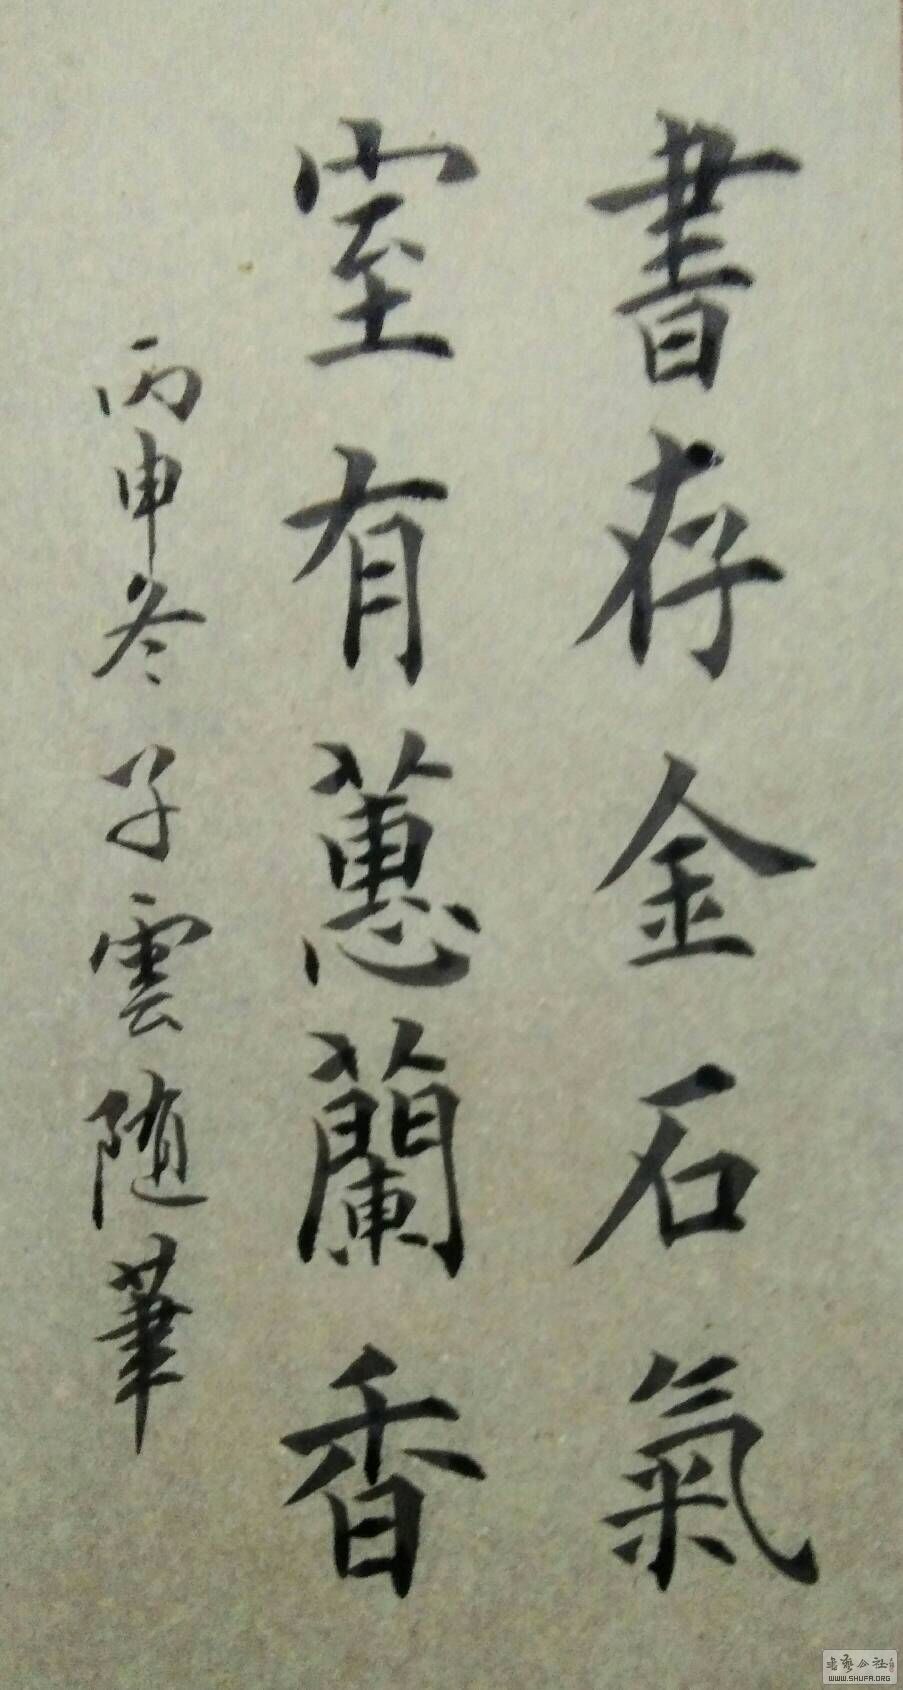 書存金石氣
室有蕙蘭香
丙申冬子雲随筆
书艺公社
WWW.SHUFA.ORG